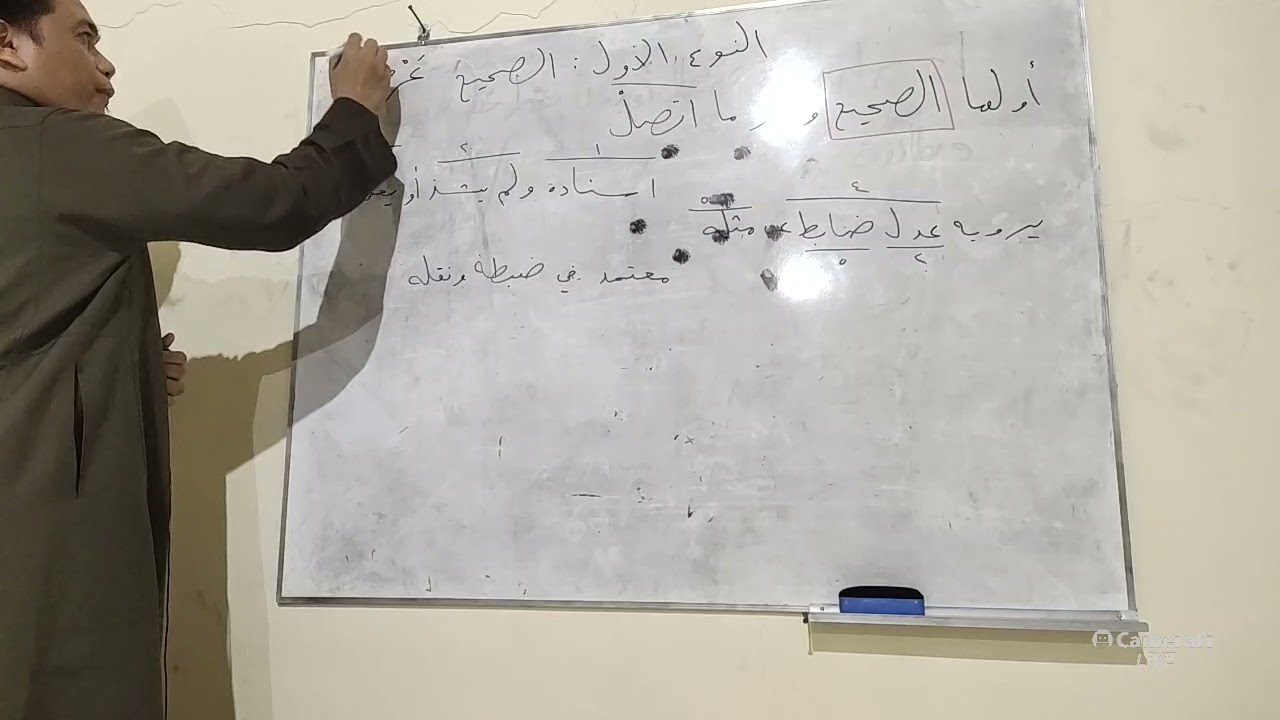 النوع الأول : الصحيح
أولها الصحيح و ما اتصلْ
١ ٢
اسناده ولم يشذ أو يعل
٤ ٥
يرويه عدل ضابط عن مثله
٢ ٥
معتمد في ضبطه ونقله